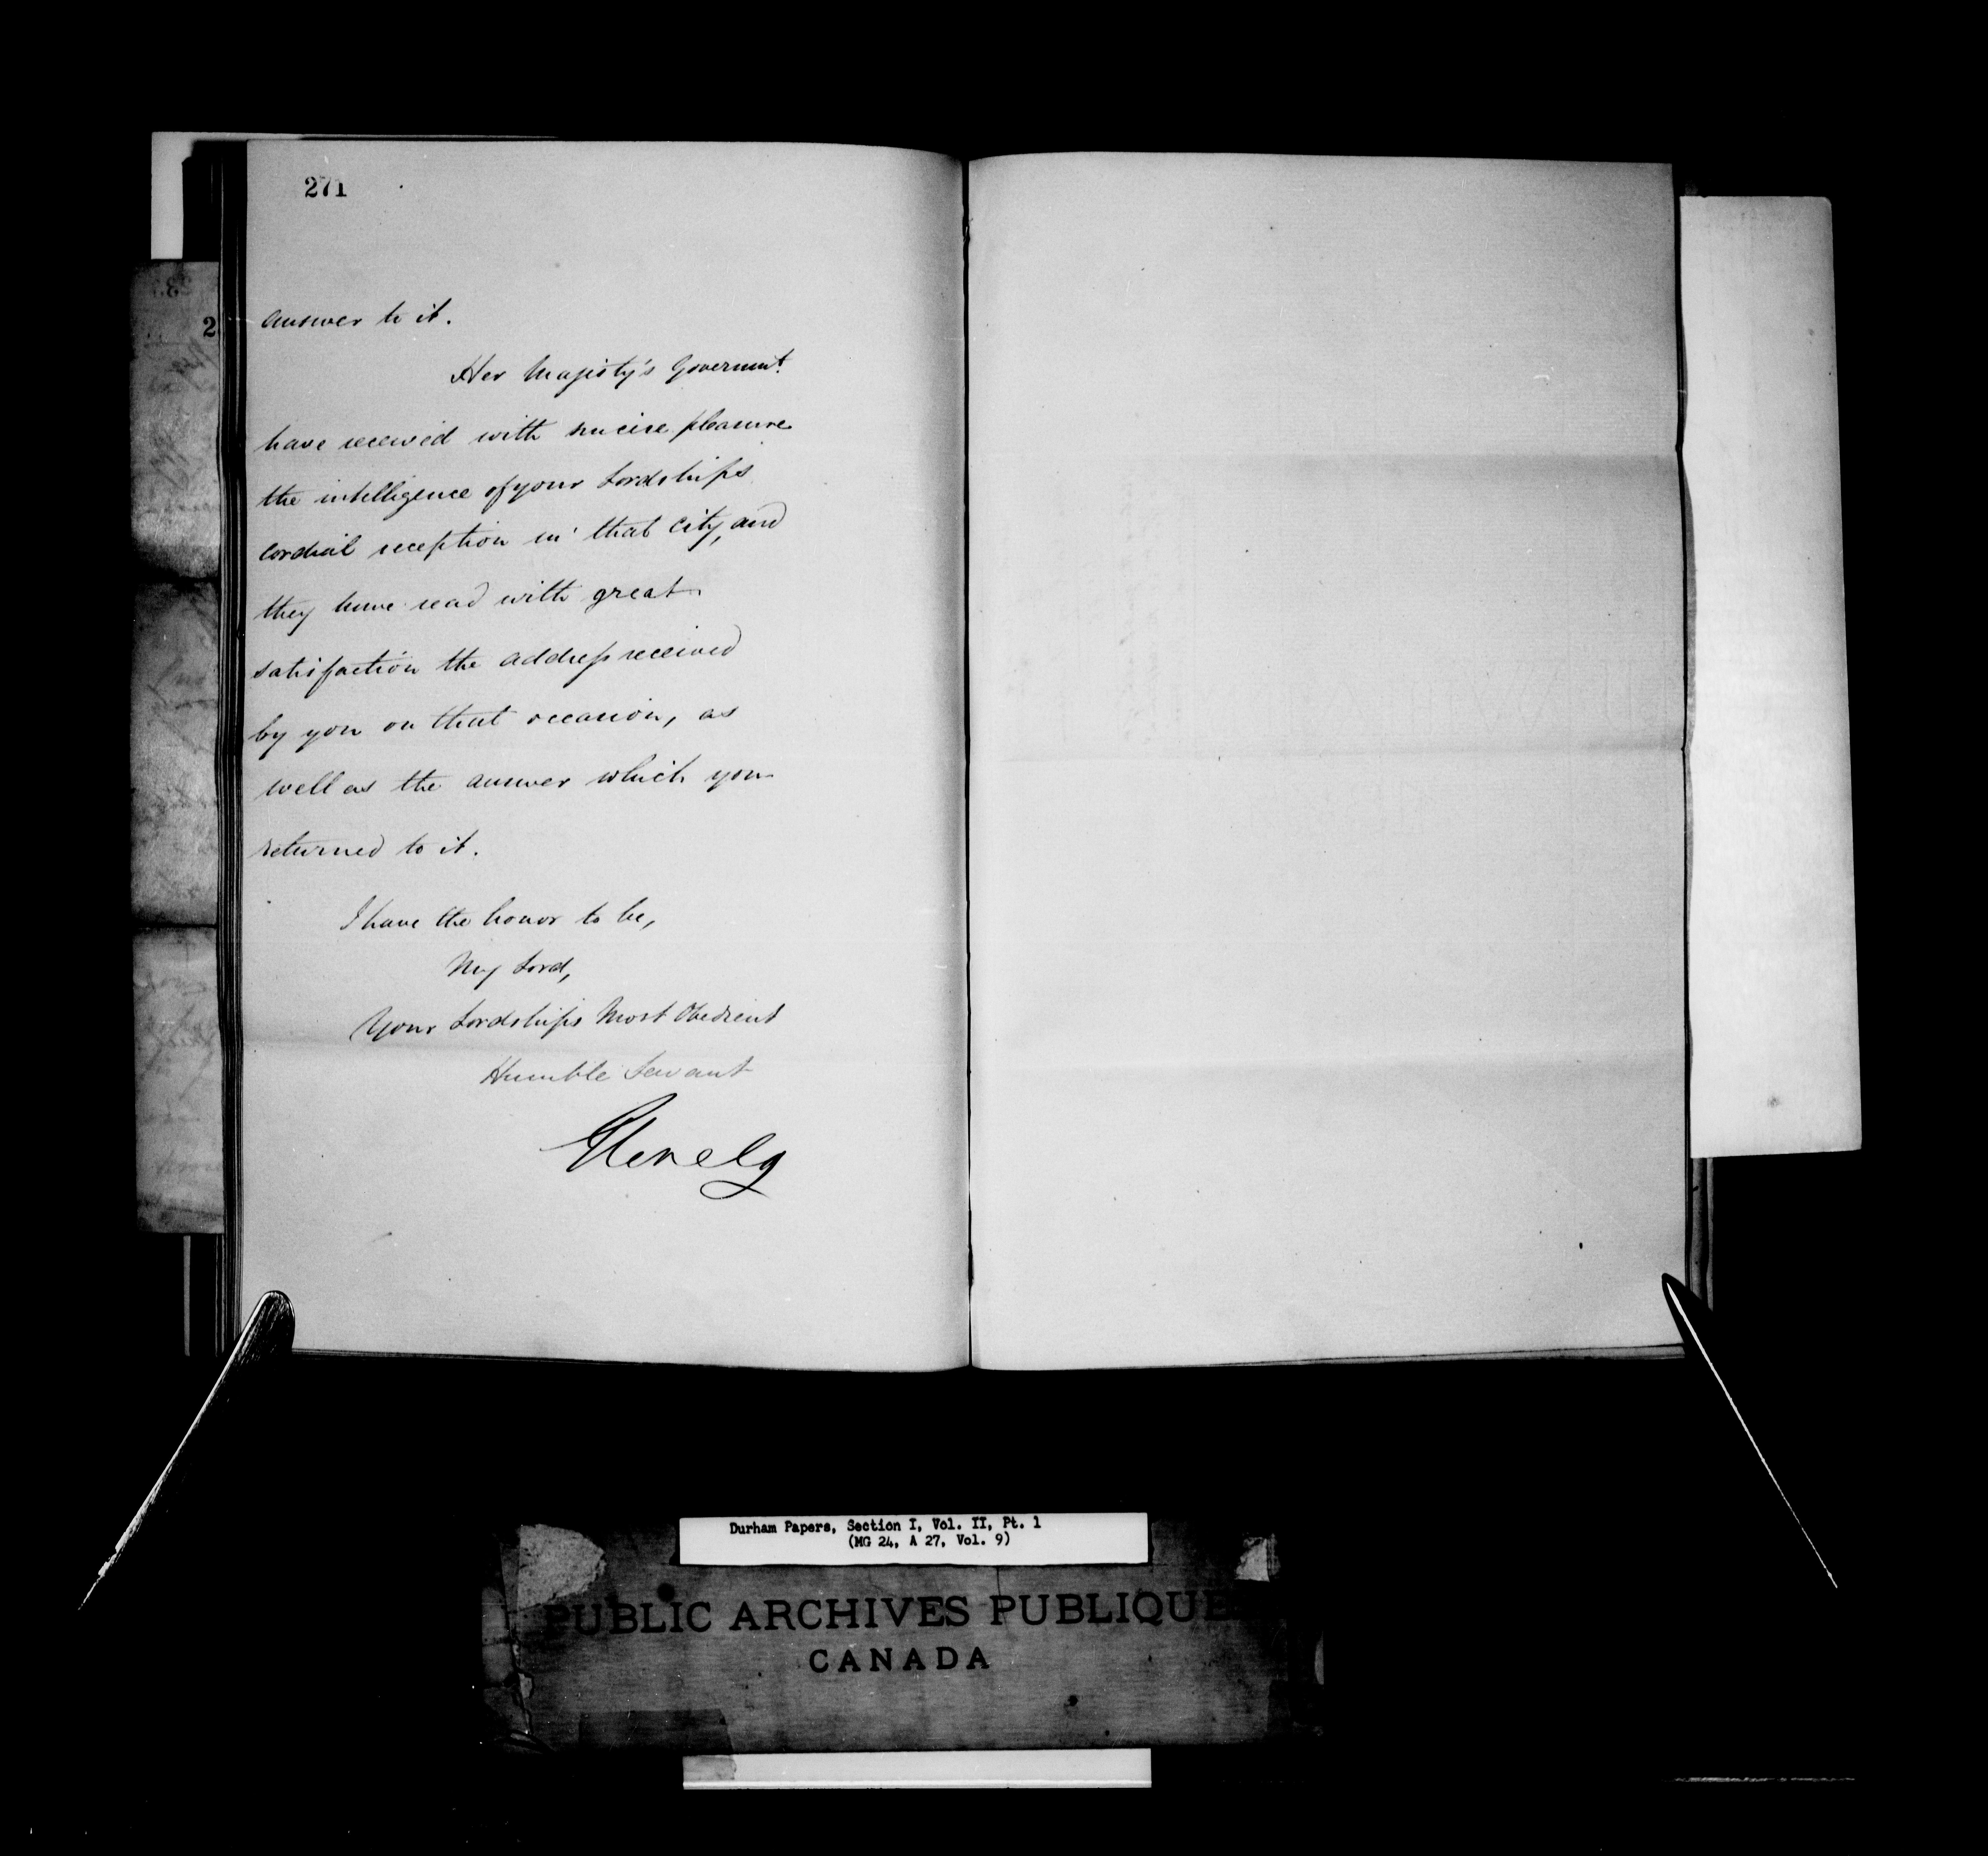 271
answer to it.
Her Majesty's Governmt.
have received with sincere pleasure
the intelligence of your Lordships
cordial reception in that City, and
they have read with great
satisfaction the address received
by you on that occasion, as
well as the answer which you
returned to it.
I have the honor to be,
My Lord,
Your Lordships Most Obedient
Humble Servant
Glenelg
2
Durham Papers, Section I, Vol. II, Pt. 1
(MG 24, A 27, Vol. 9)
PUBLIC ARCHIVES PUBLIQUE
CANADA